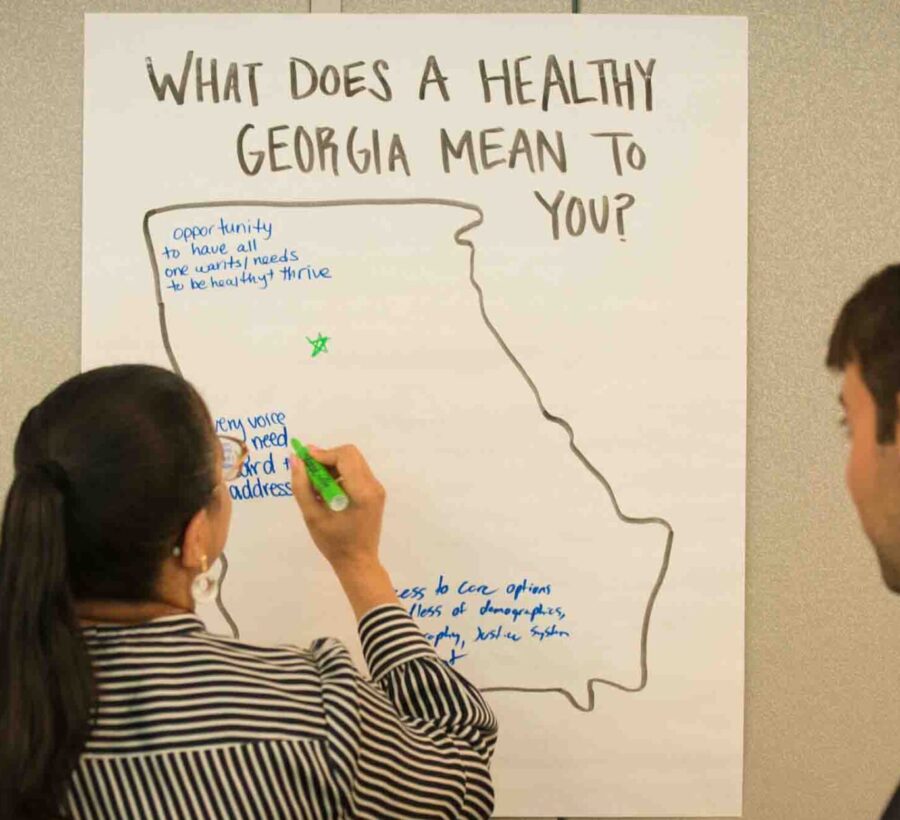 WHAT DOES A HEALTHY
GEORGIA MEAN TO
YOU?
opportunity
to have all
one wants/needs
to be healthy + thrive
very voice
need
address
to care options
of demographics,
Justice System